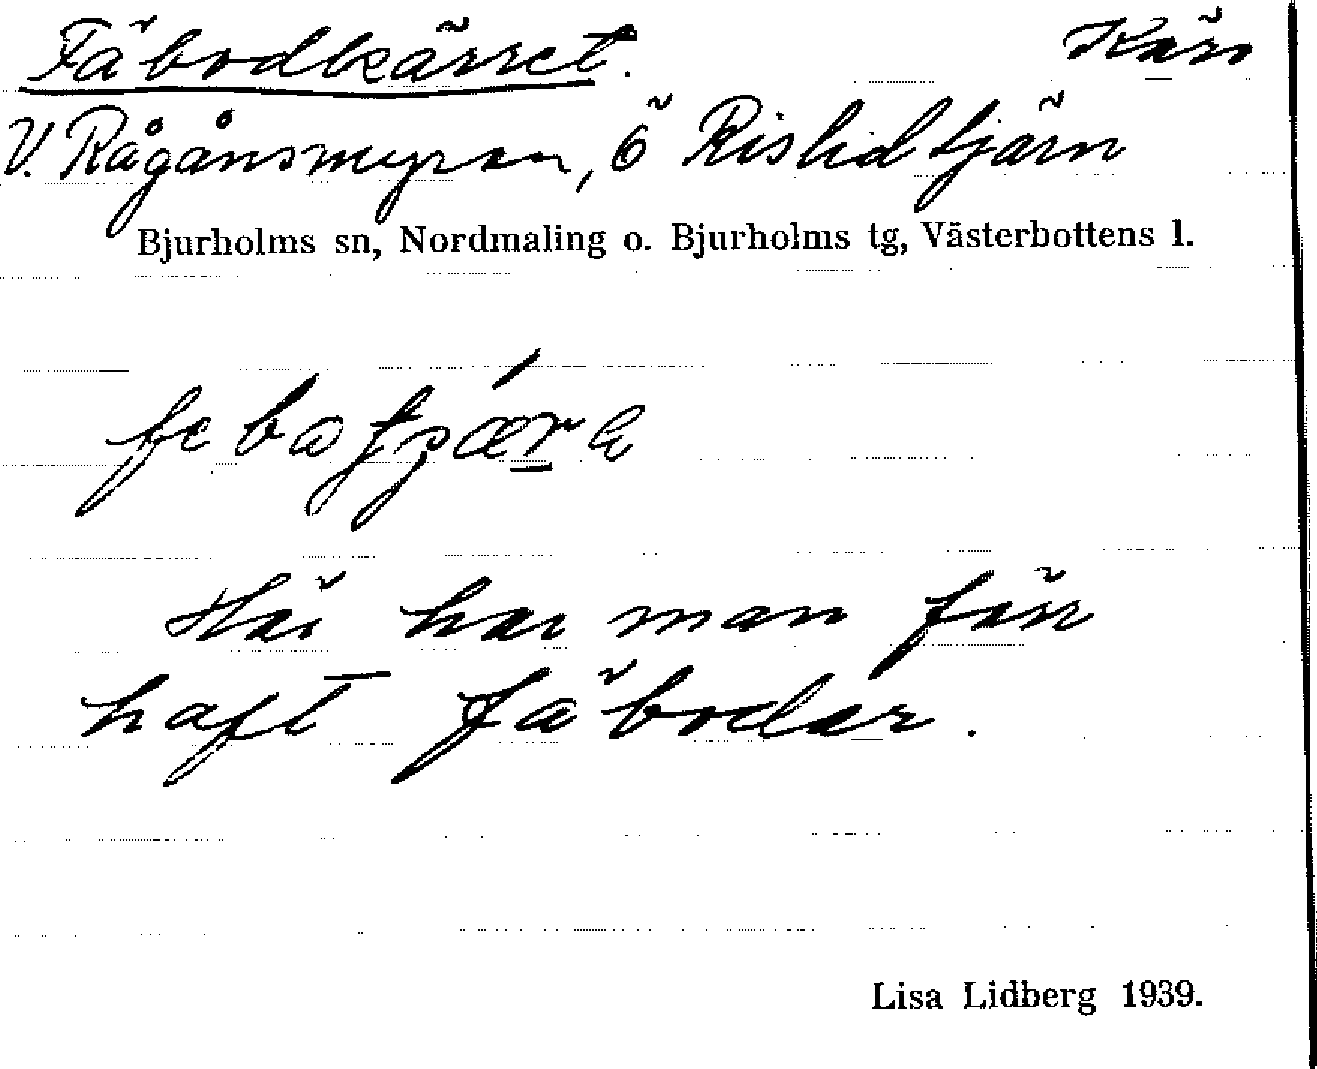 Fäbodkärret. Kärr
V. Rågånsmyran, Ö Rislidtjärn
Bjurholms sn, Nordmaling o. Bjurholms tg, Västerbottens l.
Här har man förr
haft fäbodar.
Lisa Lidberg 1939.